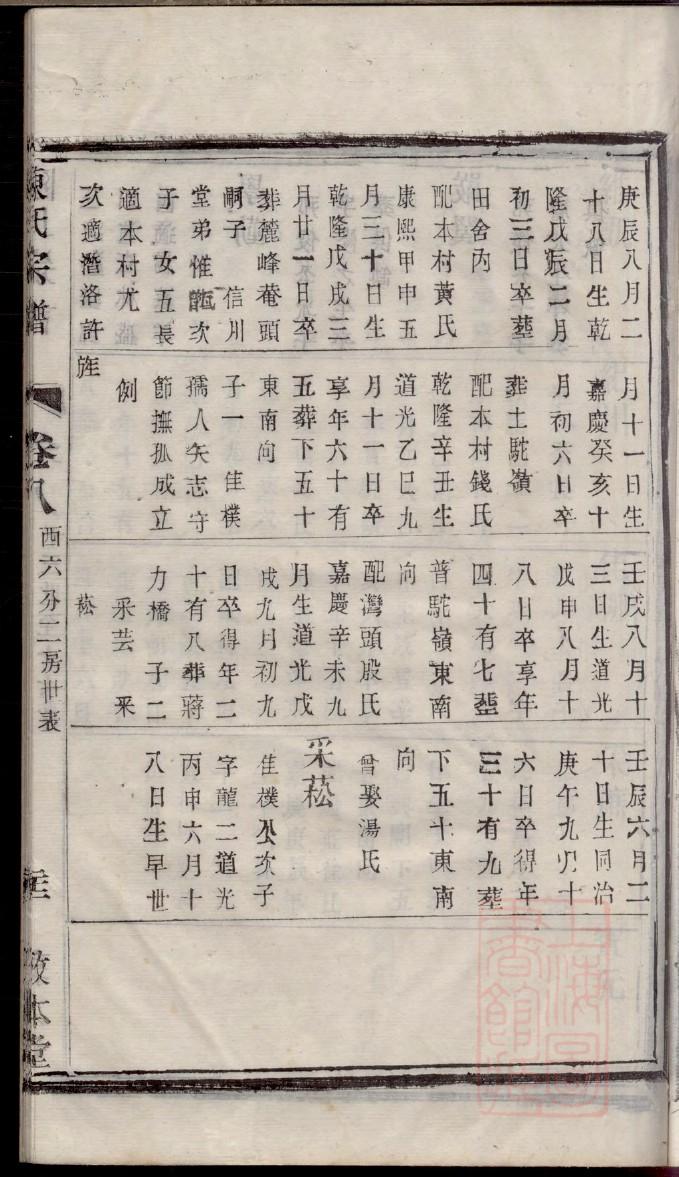 庚辰八月二
十八日生乾
隆戊辰二月
初三日卒塟
田舍内
配本村黃氏
康熙甲申五
月三十日生
乾隆戊戌三
月廿一日卒
葬麓峰菴頭
嗣子　信川
堂弟惟龍次
子　女五長
適本村尤盛
次適潛洛許
月十一日生
嘉慶癸亥十
月初六日卒
葬土駝嶺
配本村錢氏
乾隆辛丑生
道光乙巳九
月十一日卒
享年六十有
五葬下五十
東南向
子一　佳樸
孺人矢志守
節撫孤成立
例
旌
壬戌八月十
三日生道光
戊申八月十
八日卒享年
四十有七塟
普駝嶺東南
向
配灣頭殷氏
嘉慶辛未九
月生道光戊
戌九月初九
日卒得年二
十有八葬蔣
力橋　子二
采芸　采
菘
壬辰六月二
十日生同治
庚午九月十
六日卒得年
三十有九葬
下五十東南
向
曾娶湯氏
采菘
佳樸公次子
字龍二道光
丙申六月十
八日生早世
陳氏宗譜
卷八
西六分二房世表
敦本堂
上海圖書館藏